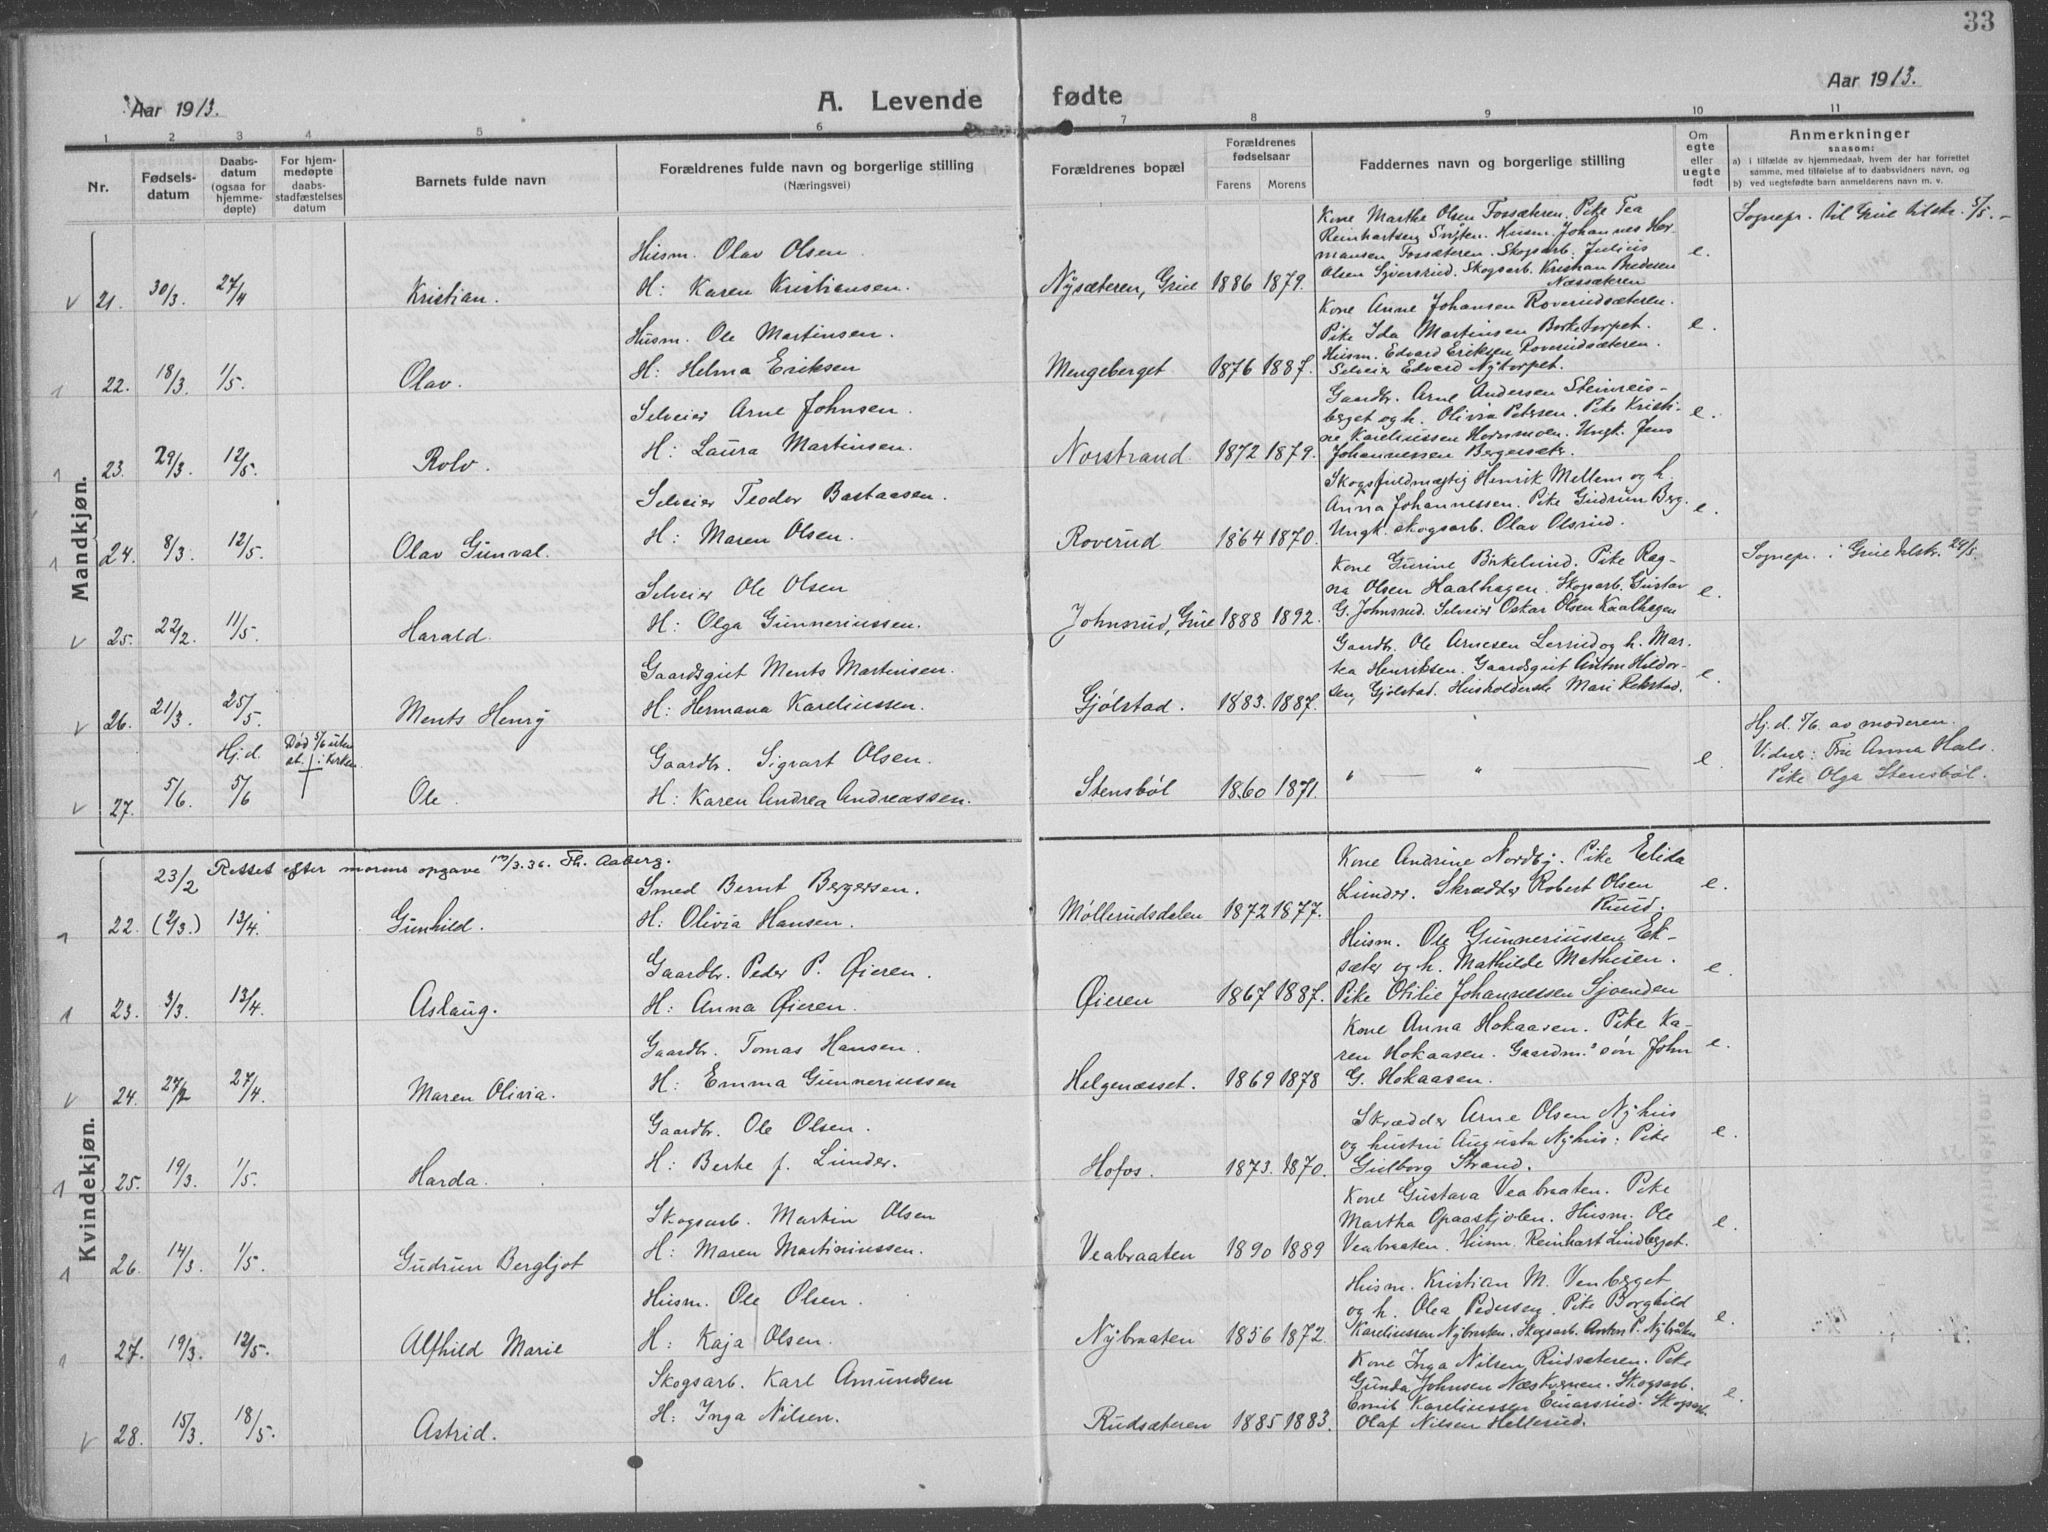 33
Aar 1913.
A. Levende fødte
Aar 1913.
1 2 3 4 5 6 7 8 9 10 11
Nr.
Fødsels-
datum
Daabs-
datum
(ogsaa for
hjemme-
døpte)
For hjem-
medøpte
daabs-
stadfæstelses
datum
Barnets fulde navn
Forældrenes fulde navn og borgerlige stilling
(Næringsvei)
Forældrenes bopæl
Forældrenes
fødselsaar
Farens Morens
Faddernes navn og borgerlige stilling
Om
egte
eller
uegte
født
Anmerkninger
saasom:
a) i tilfælde av hjemmedaab, hvem der har forrettet
samme, med tilføielse af to daabsvidners navn, og
b) ved uegtefødte barn anmelderens navn m. v.
Mandkjøn.
21. 30/3. 27/4 Kristian.
Husm. Olav Olsen.
H: Karen Kristiansen.
Nysæteren, Grue 1886 1879.
Kone Marthe Olsen Fossæteren. Pike Tea
Reinhartsen. Husm. Johannes Her-
mansen Fossæteren. Skogsarb. Julius
Olsen Syversrud. Skogsarb. Kristian Bredesen
Næssæteren
e.
Sognepr. til Grue tilskr. 5/5.
22. 18/3. 1/5. Olav.
Husm. Ole Martinsen.
H: Helma Eriksen
Mengeberget 1876 1887.
Kone Anne Johansen Roverudsæteren.
Pike Ida Martinsen Borketorpet.
Husm. Edvard Eriksen Roverudsæteren.
Selveier Edvard Nytorpet.
e.
23. 29/3. 12/5. Rolv.
Selveier Arne Johnsen.
H: Laura Martinsen.
Norstrand. 1872 1879.
Gaardbr. Arne Andersen Steinreis-
berget og h. Olivia Petersen. Pike Kristi-
ne Kareliussen Hornmoen. Ungk. Jens
Johannessen Bergersæt.
e.
24. 8/3. 12/5. Olav Gunval.
Selveier Teodor Bastaasen.
H: Maren Olsen.
Roverud 1864 1870.
Skogsfuldmægtig Henrik Mellem og h.
Anna Johannessen. Pike Gudrun Berg.
Ungk. skogsarb. Olav Olsrud.
e.
25. 22/2. 11/5. Harald.
Selveier Ole Olsen
H: Olga Gunneriussen.
Johnsrud, Grue 1888 1892.
Kone Gurine Birkelund. Pike Rag-
na Olsen Haalhagen. Skogsarb. Gustav
G. Johnsrud. Selveier Oskar Olsen Kaalhagen
e.
Sognepr. i Grue tilskr. 29/5.
26. 21/3. 25/5. Ments Henry
Gaardsgut Ments Martinsen.
H: Hermana Kareliussen.
Gjølstad. 1883. 1887.
Gaardbr. Ole Arnesen Lerrud og h. Mar-
tea Henriksen. Gaardsgut Anton Hildor-
sen, Gjølstad. Husholderske Mari Rekstad.
e.
27. 5/6. Hj. d. 5/6 Død 5/6 uten
st. i kirken Ole.
Gaardbr. Sigvart Olsen.
H: Karen Andrea Andreassen.
Stensbøl 1860 1871.
" — " —
e.
Hj. d. 5/6. av moderen.
Vidner: Fru Anna Hals.
Pike Olga Stensbøl.
Kvindekjøn.
23/2 Rettet efter morens opgave 13/3.36. Th. Aaberg.
22. (2/3.) 13/4. Gunhild.
Smed Bernt Bergersen.
H: Olivia Hansen.
Møllerudsdalen 1872 1877.
Kone Andrine Nordby. Pike Elida
Lunder. Skrædder Robert Olsen
Ruud.
e.
23. 3/3. 13/4. Aslaug.
Gaardbr. Peder P. Øieren.
H: Anna Øieren.
Øieren 1867 1887.
Husm. Ole Gunneriussen Ek-
sæter og h. Mathilde Mathisen.
Pike Otilie Johannessen Sjoenden
e.
24. 27/2 27/4. Maren Olivia.
Gaardbr. Tomas Hansen.
H: Emma Gunneriussen
Helgenæsset. 1869 1878
Kone Anna Hokaasen. Pike Ka-
ren Hokaasen. Gaardm.s søn John
G. Hokaasen.
e.
25. 19/3. 1/5. Harda.
Gaardbr. Ole Olsen.
H: Berte f. Lunder.
Hofos. 1873. 1870.
Skrædder Arne Olsen Nyhus
og hustru Augusta Nyhus: Pike
Gulborg Strand.
e.
26. 14/3. 1/5. Gudrun Bergljot
Skogsarb. Martin Olsen
H: Maren Martiniussen.
Veabraaten 1890 1889
Kone Gustava Veabraaten. Pike
Martha Opaaskjølen. Husm. Ole
Veabraaten. Husm. Reinhart Lindberget.
e.
27. 19/3. 12/5. Alfhild Marie
Husm. Ole Olsen.
H: Kaja Olsen.
Nybraaten 1856 1872.
Husm. Kristian M. Venberget
og h. Olea Pedersen. Pike Borghild
Kareliussen Nybraten. Skogsarb. Anton P. Nybråten
e.
28. 15/3. 18/5. Astrid.
Skogsarb. Karl Amundsen
H: Inga Nilsen.
Rudsæteren 1885 1883.
Kone Inga Nilsen Rudsæteren. Pike
Gunda Johnsen Næskvernen. Skogsarb.
Emil Kareliussen Einarsrud. Skogsarb.
Olaf Nilsen Hellerud.
e.